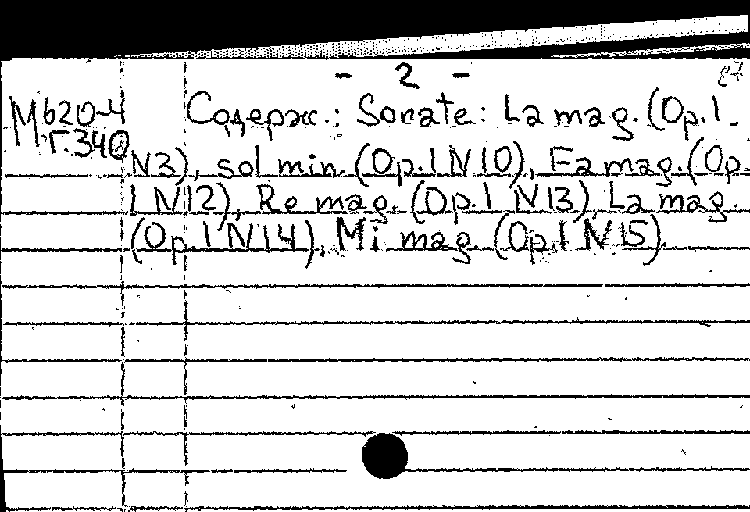 - 2 -
М620-4 Содерж.: Sonate: La mag. (Op.1
Г.340 N3), sol min. (Op.1 N10), Fa mag. (Op.
1 N12), Re mag. (Op.1 N13), La mag.
(Op.1 N14), Mi mag. (Op.1 N15).